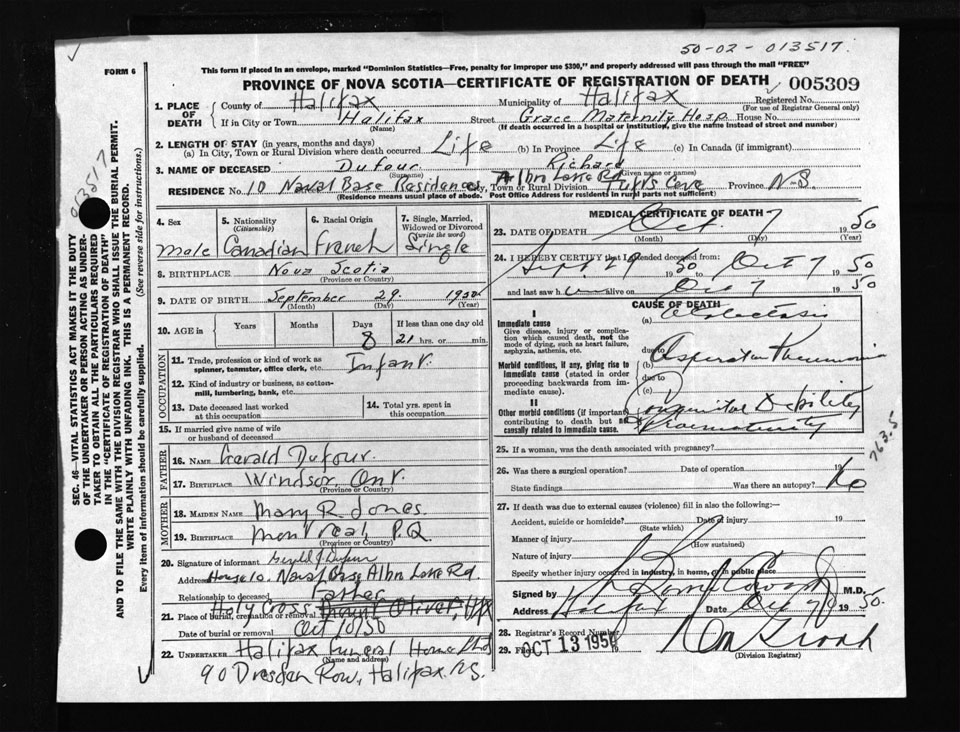 50-02-013517
FORM 6
This form if placed in an envelope, marked "Dominion Statistics—Free, penalty for improper use $300," and properly addressed will pass through the mail "FREE"
PROVINCE OF NOVA SCOTIA—CERTIFICATE OF REGISTRATION OF DEATH 005309
1. PLACE OF DEATH County of Halifax Municipality of Halifax Registered No. (For use of Registrar General only)
If in City or Town Halifax (Name) Street Grace Maternity Hosp House No.
(If death occurred in a hospital or institution, give the name instead of street and number)
2. LENGTH OF STAY (in years, months and days)
(a) In City, Town or Rural Division where death occurred Life (b) In Province Life (c) In Canada (if immigrant)
3. NAME OF DECEASED Dufour (Surname) Richard (Given name or names)
RESIDENCE No. 10 Naval Base Residences Albn Lake Rd City, Town or Rural Division Tufts Cove Province N-S
(Residence means usual place of abode. Post Office Address for residents in rural parts not sufficient)
013517
SEC. 46—VITAL STATISTICS ACT MAKES IT THE DUTY OF THE UNDERTAKER OR PERSON ACTING AS UNDERTAKER TO OBTAIN ALL THE PARTICULARS REQUIRED IN THE "CERTIFICATE OF REGISTRATION OF DEATH" AND TO FILE THE SAME WITH THE DIVISION REGISTRAR WHO SHALL ISSUE THE BURIAL PERMIT.
WRITE PLAINLY WITH UNFADING INK. THIS IS A PERMANENT RECORD.
Every item of information should be carefully supplied. (See reverse side for instructions.)
4. Sex Male
5. Nationality (Citizenship) Canadian
6. Racial Origin French
7. Single, Married, Widowed or Divorced (write the word) Single
8. BIRTHPLACE Nova Scotia (Province or Country)
9. DATE OF BIRTH September (Month) 29. (Day) 1950 (Year)
10. AGE in Years Months Days 8 If less than one day old 21 hrs. or min.
OCCUPATION
11. Trade, profession or kind of work as spinner, teamster, office clerk, etc. Infant.
12. Kind of industry or business, as cotton-mill, lumbering, bank, etc.
13. Date deceased last worked at this occupation
14. Total yrs. spent in this occupation
15. If married give name of wife or husband of deceased
FATHER
16. NAME Gerald Dufour.
17. BIRTHPLACE Windsor, Ont. (Province or Country)
MOTHER
18. MAIDEN NAME Mary R Jones.
19. BIRTHPLACE Montreal, P.Q. (Province or Country)
20. Signature of informant Gerald J Dufour
Address House 10. Naval Base Albn Lake Rd.
Relationship to deceased Father
21. Place of burial, cremation or removal Holy Cross Mount Olivet, Hfx
Date of burial or removal Oct 10/50
22. UNDERTAKER Halifax Funeral Home Ltd (Name and address)
90 Dresden Row, Halifax. N.S.
MEDICAL CERTIFICATE OF DEATH
23. DATE OF DEATH Oct. (Month) 7 (Day) 1950 (Year)
24. I HEREBY CERTIFY that I attended deceased from: Sept 29 1950 to Oct 7 1950
and last saw him alive on Oct 7 1950
CAUSE OF DEATH
I
Immediate cause
Give disease, injury or complication which caused death, not the mode of dying, such as heart failure, asphyxia, asthenia, etc.
(a) Atelectasis
due to
(b) Aspiration Pneumonia
Morbid conditions, if any, giving rise to immediate cause (stated in order proceeding backwards from immediate cause).
due to
(c)
II
Other morbid conditions (if important) contributing to death but not causally related to immediate cause.
Congenital Debility
Praematurity
763.5
25. If a woman, was the death associated with pregnancy?
26. Was there a surgical operation? Date of operation 19
State findings Was there an autopsy? No
27. If death was due to external causes (violence) fill in also the following:—
Accident, suicide or homicide? (State which) Date of injury 19
Manner of injury (How sustained)
Nature of injury
Specify whether injury occurred in industry, in home, or in public place
Signed by M.D.
Address Halifax Date Oct 7 1950.
28. Registrar's Record Number
29. Filed OCT 13 1950
(Division Registrar)